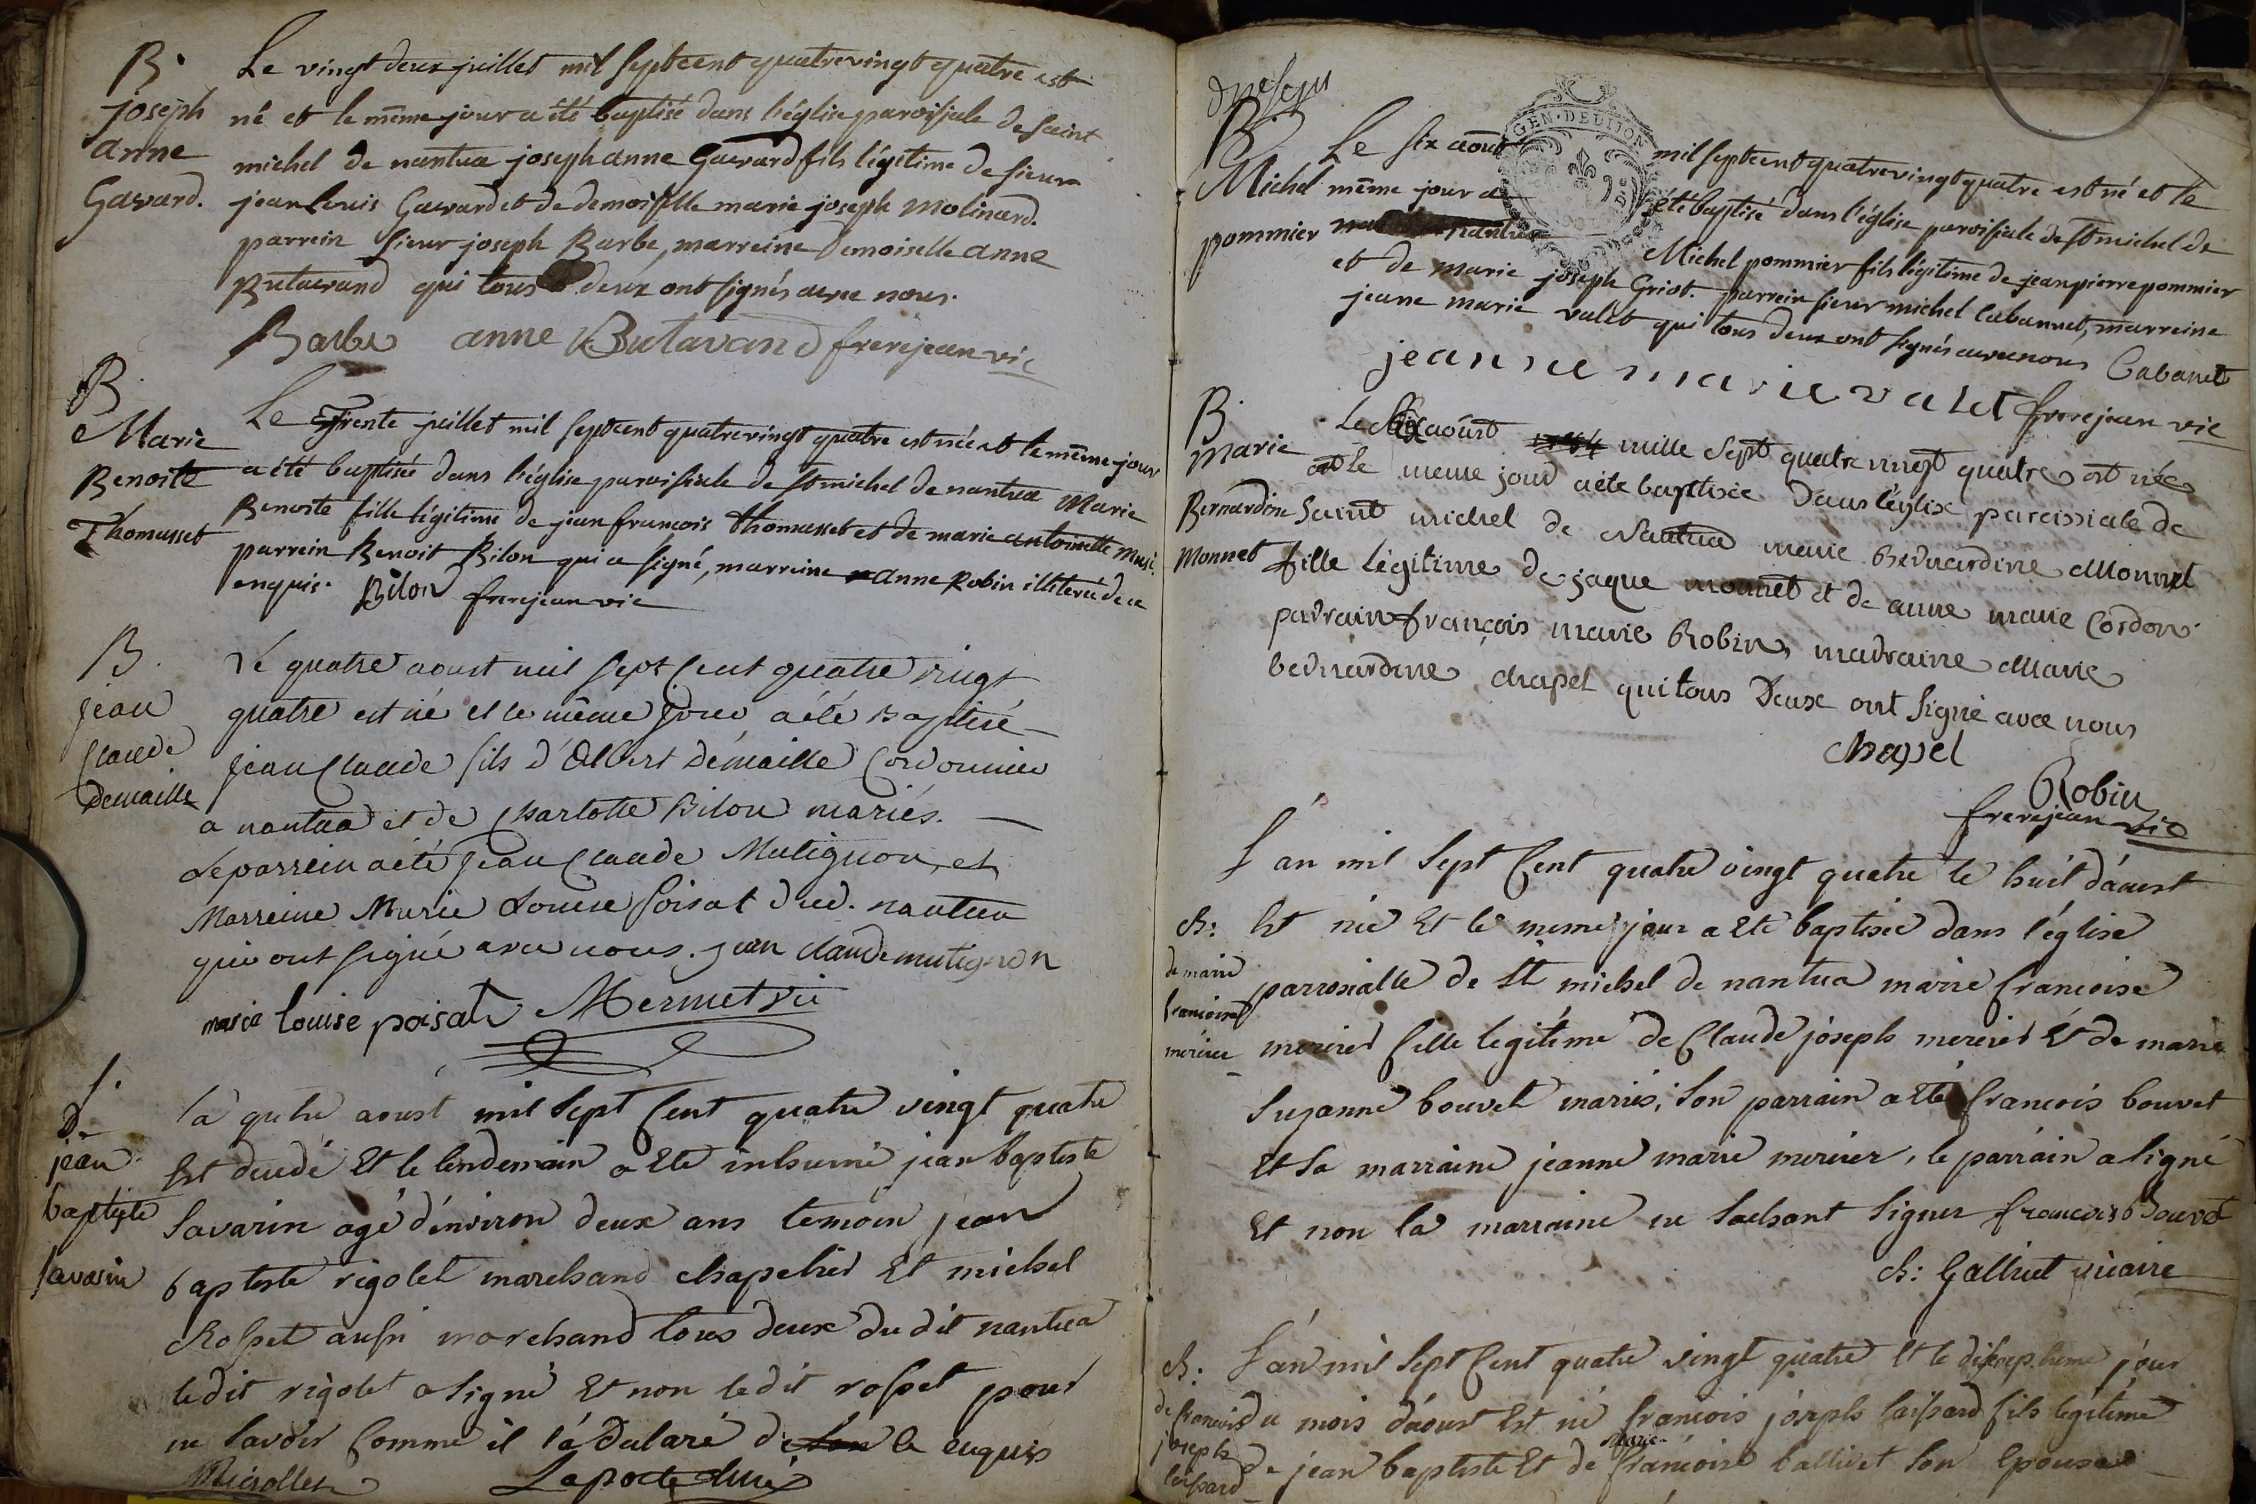 B.
joseph
anne
Gavard.
Le vingt deux juillet mil septcent quatrevingt quatre est
né et le même jour a été baptisé dans l'église paroissiale de saint
michel de nantua joseph anne Gavard fils légitime de sieur
jean Louis Gavard et de demoiselle marie joseph molinard.
parrein sieur joseph Barbe, marreine demoiselle anne
Butavand qui tous deux ont signés avec nous.
Barbe anne Butavand frerejean vic
B.
Marie
Benoite
Thomasset
Le Trente juillet mil septcent quatrevingt quatre est née et le même jour
a été baptisée dans l'église paroissiale de St michel de nantua Marie
Benoite fille légitime de jean francois thomasset et de marie antoinette
parrein Benoit Bilon qui a signé, marreine anne Robin illiterée de ce
enquis. Bilon frerejean vic
B.
jean
Claude
Demaille
Le quatre aoust mil sept cent quatre vingt
quatre est né et le même jour a été Baptisé
jean Claude fils d'Albert Démaille Cordonnier
a nantua et de Charlotte Bilon mariés.
Le parrein a été jean Claude Mutignon, et
Marreine Marie Louise Poisat dud. nantua
qui ont signé avec nous. jean claude mutignon
marie louise poisat Mermet vic
S.
De
jean
baptiste
savarin
la qutre aoust mil sept Cent quatre vingt quatre
Est decedé Et le lendemain a Eté inhumé jean baptiste
Savarin agé d'environ deux ans temoin jean
baptiste rigolet marchand chapelier Et michel
Rosset aussi marchand tous deux du dit nantua
ledit rigolet a signé Et non ledit rosset pour
ne savoir Comme il l'a dclaré de ce enquis
Laporte curé
B.
Michel
pommier
Le six août mil septcent quatrevingt quatre est né et le
même jour a été baptisé dans l'église paroissiale de St michel de
nantua Michel pommier fils légitime de jean pierre pommier
et de marie joseph Griot. parrein sieur michel Cabannet, marreine
jeane marie valet qui tous deux ont signés avec nous Cabanet
jeanne marie valet frerejean vic
GEN. DE DIJON
B.
Marie
Bernardine
Monnet
Le Six aoûst mille sept quatre vingt quatre est née
et le meme jour a été baptisée dans l'église paroissiale de
Saint michel de Nantua marie Bernardine Monnet
fille légitime de jaque monnet et de anne marie Cordon.
parrain françois marie Robin, madraine Marie
bernardine chapel qui tous Deux ont signé avec nous
chapel
Robin
frerejean vic
B:
de marie
francoise
mercier
L'an mil sept Cent quatre vingt quatre le huit d'aoust
Est née Et le meme jour a Eté baptisée dans l'église
parrossialle de St michel de nantua marie francoise
mercier fille legitime de Claude joseph mercier Et de marie
Suzanne bouvet mariés; Son parrain a Eté francois bouvet
Et Sa marraine jeanne marie mercier, le parrain a signé
Et non la marraine ne sachant signer francois Bouvet
B: Galliet vicaire
B:
de francois
joseph
L'an mil sept Cent quatre vingt quatre Et le disseptieme jour
du mois d'aoust Est né francois joseph fils legitime
de jean baptiste Et de marie francoise ballivet Son Epouse